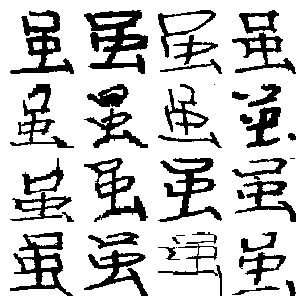 虽虽虽虽
虽虽虽虽
虽虽虽虽
虽虽虽虽